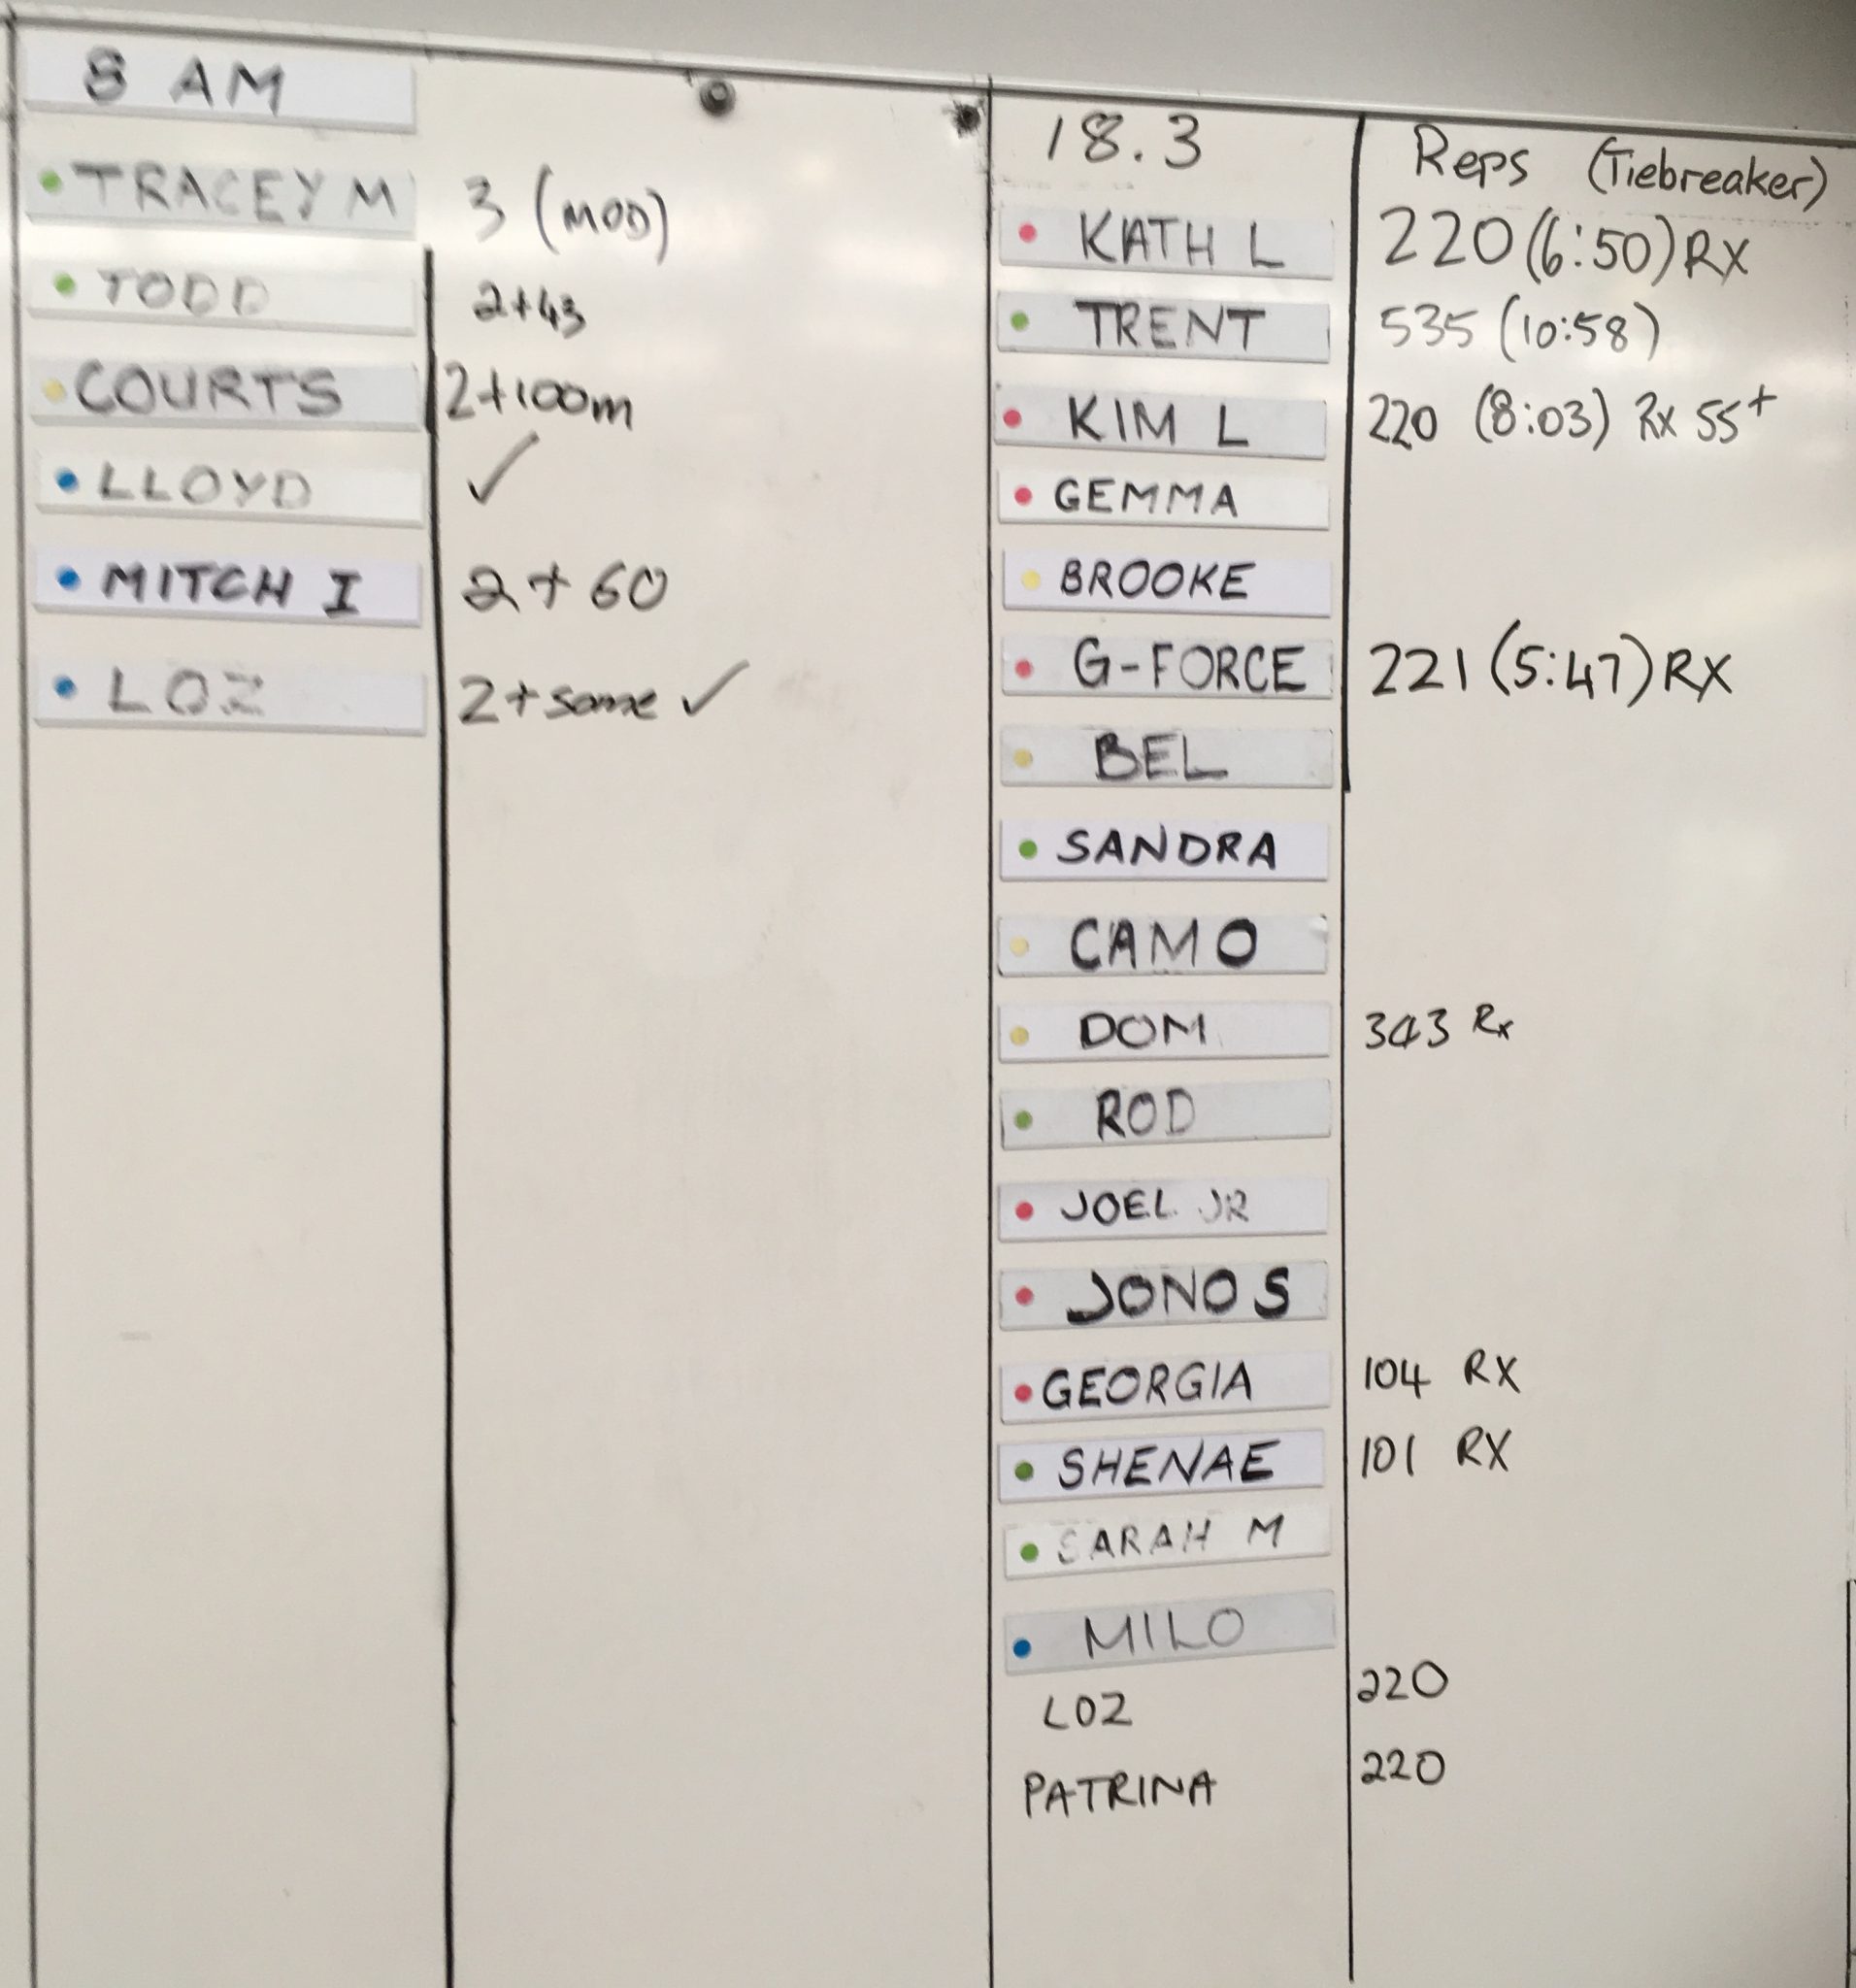 8 AM
TRACEY M 3 (MOD)
TODD 2+43
COURTS 2+100m
LLOYD ✓
MITCH I 2+60
LOZ 2+some ✓
18.3 Reps (Tiebreaker)
KATH L 220 (6:50) RX
TRENT 535 (10:58)
KIM L 220 (8:03) Rx 55+
GEMMA
BROOKE
G-FORCE 221 (5:47) RX
BEL
SANDRA
CAMO
DOM 343 Rx
ROD
JOEL JR
JONO S
GEORGIA 104 RX
SHENAE 101 RX
SARAH M
MILO
LOZ 220
PATRINA 220